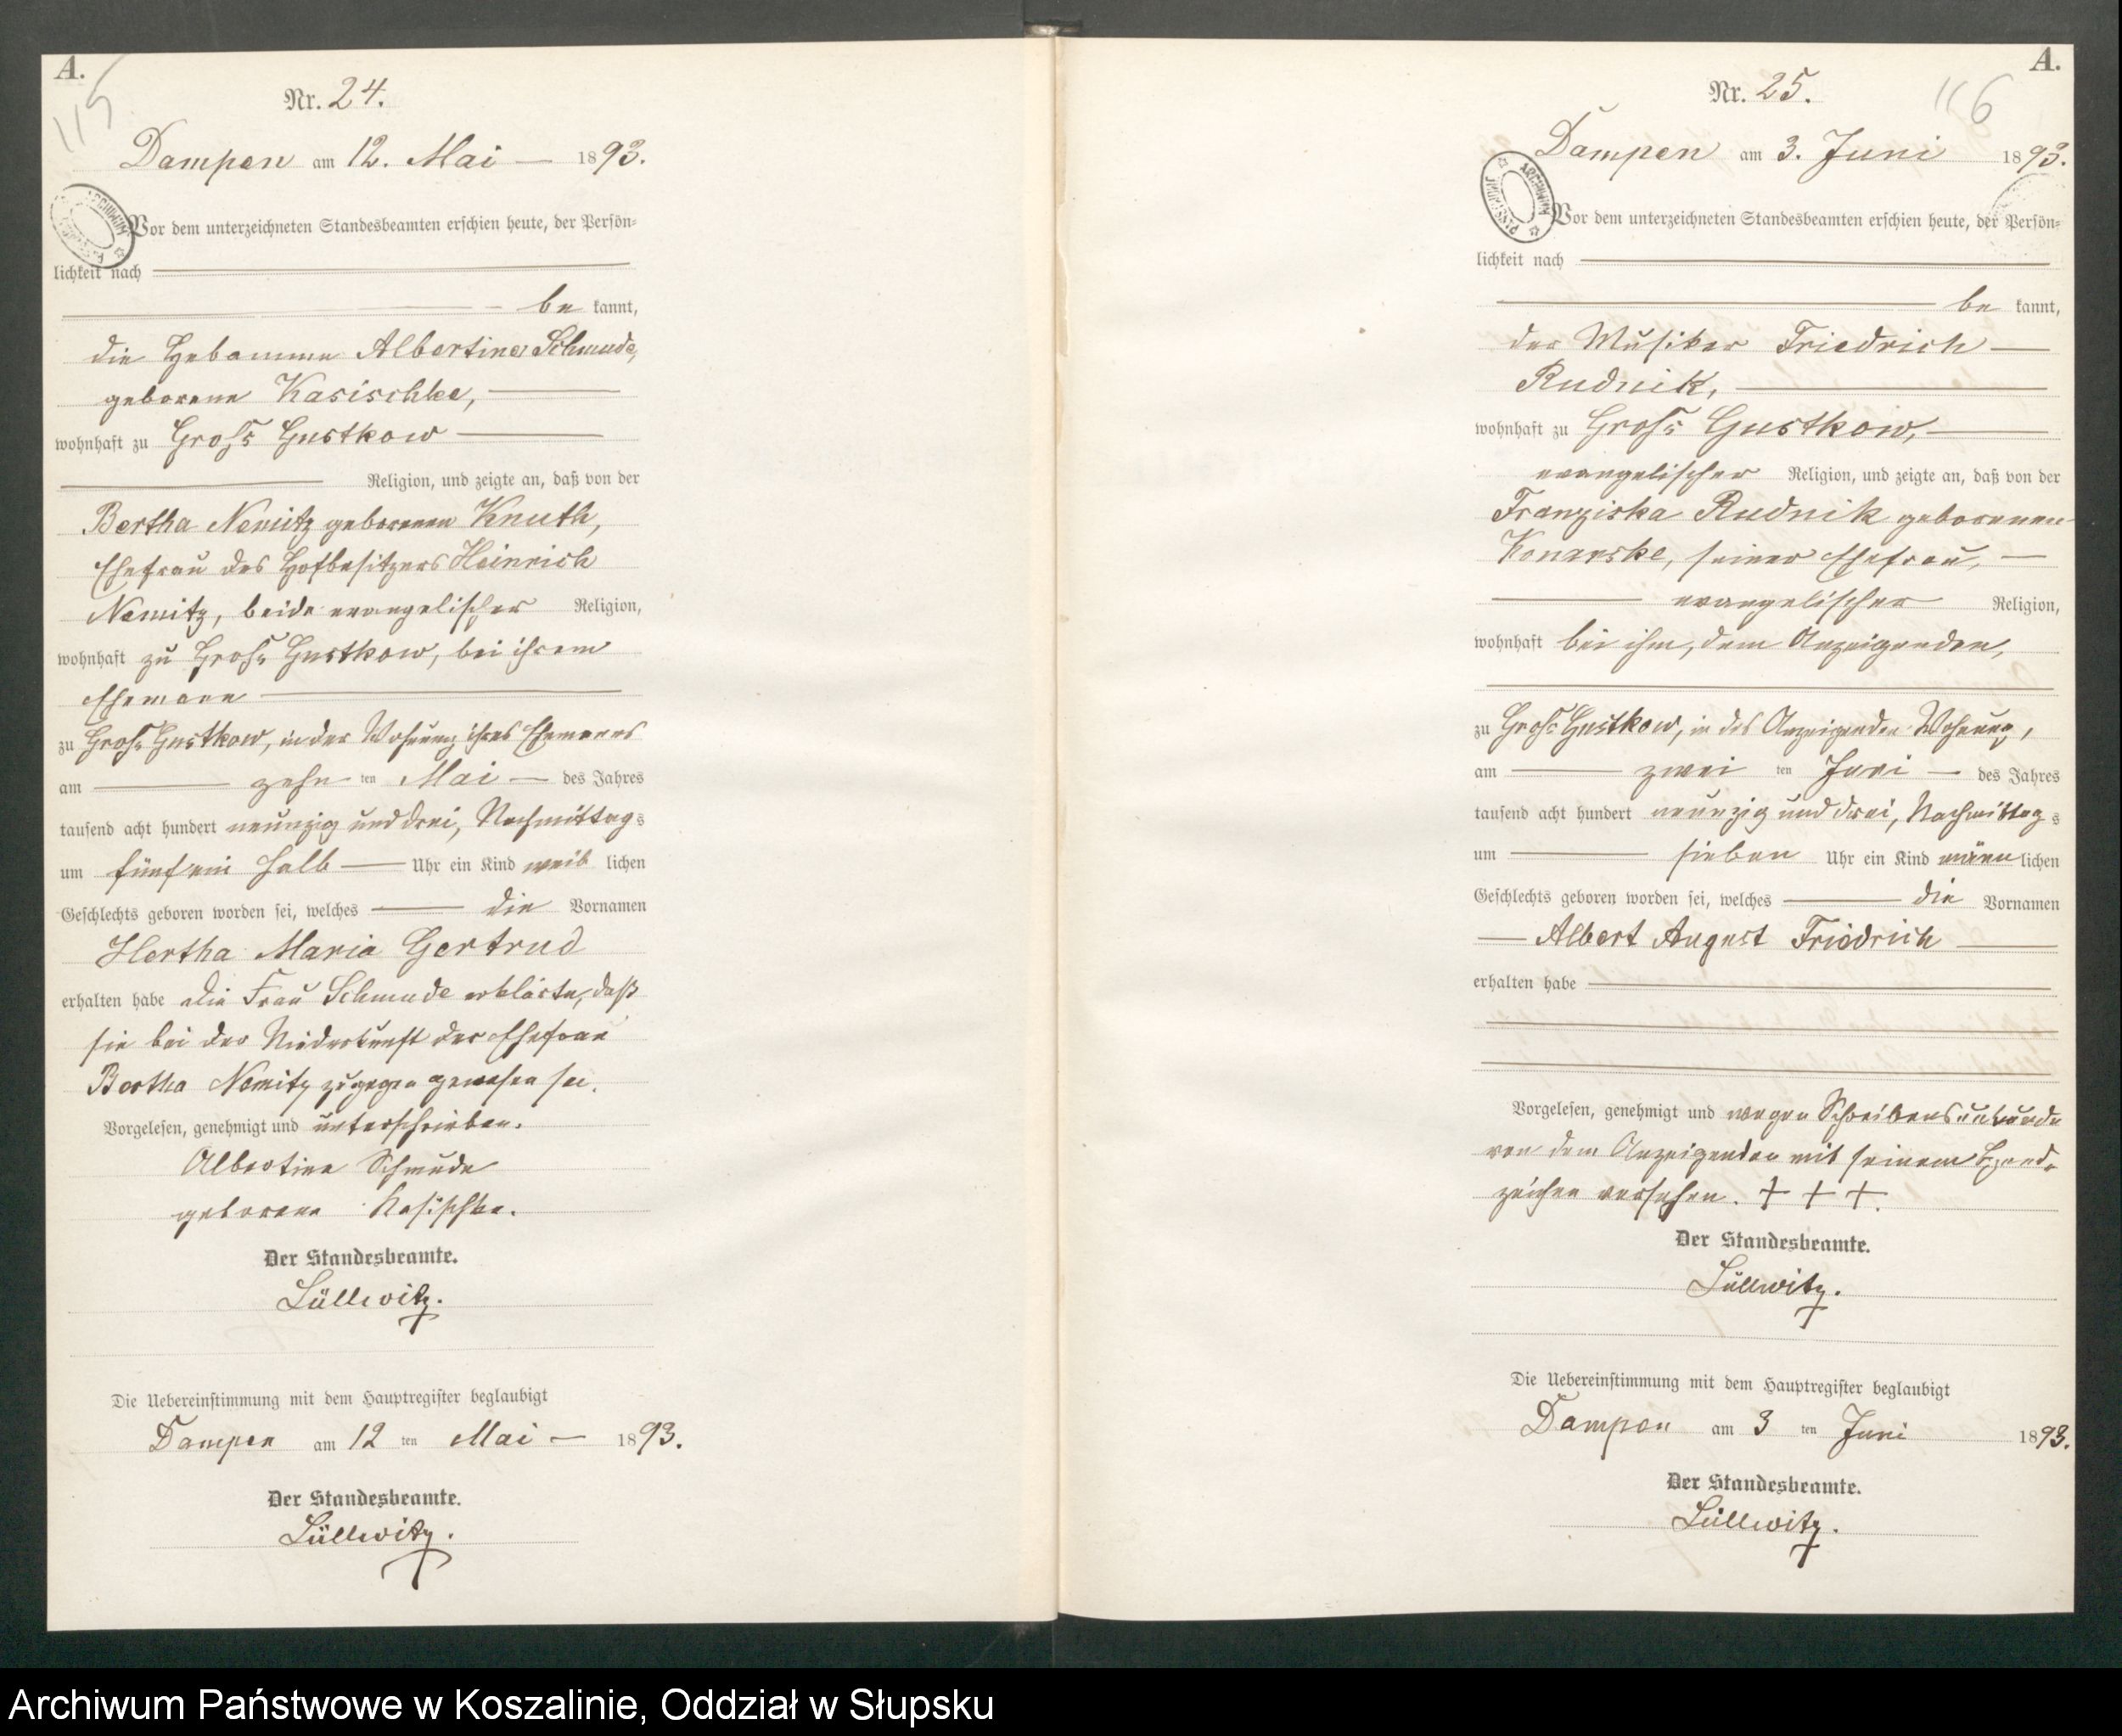 A.
115
Nr. 24.
Dampen am 12. Mai 1893.
Vor dem unterzeichneten Standesbeamten erschien heute, der Persön=
lichkeit nach
be kannt,
die Hebamme Albertine Schmude,
geborene Kasischke,
wohnhaft zu Groß Gustkow
Religion, und zeigte an, daß von der
Bertha Nemitz geborenen Knuth,
Ehefrau des Hofbesitzers Heinrich
Nemitz, beide evangelischer Religion,
wohnhaft zu Groß Gustkow, bei ihrem
Ehemann
zu Groß Gustkow, in der Wohnung ihres Ehemannes
am zehn ten Mai des Jahres
tausend acht hundert neunzig und drei, Nachmittags
um fünf ein halb Uhr ein Kind weib lichen
Geschlechts geboren worden sei, welches die Vornamen
Hertha Maria Gertrud
erhalten habe Die Frau Schmude erklärte, daß
sie bei der Niederkunft der Ehefrau
Bertha Nemitz zugegen gewesen sei.
Vorgelesen, genehmigt und unterschrieben.
Albertine Schmude
geborene Kasischke.
Der Standesbeamte.
Lüllwitz.
Die Uebereinstimmung mit dem Hauptregister beglaubigt
Dampen am 12 ten Mai 1893.
Der Standesbeamte.
Lüllwitz.
A.
116
Nr. 25.
Dampen am 3. Juni 1893.
Vor dem unterzeichneten Standesbeamten erschien heute, der Persön=
lichkeit nach
be kannt,
der Musiker Friedrich
Rudnik,
wohnhaft zu Groß Gustkow,
evangelischer Religion, und zeigte an, daß von der
Franziska Rudnik geborenen
Konarske, seiner Ehefrau,
evangelischer Religion,
wohnhaft bei ihm, dem Anzeigenden,
zu Groß Gustkow, in des Anzeigenden Wohnung,
am zwei ten Juni des Jahres
tausend acht hundert neunzig und drei, Nachmittags
um sieben Uhr ein Kind männ lichen
Geschlechts geboren worden sei, welches die Vornamen
Albert August Friedrich
erhalten habe
Vorgelesen, genehmigt und wegen Schreibensunkunde
von dem Anzeigenden mit seinem Hand-
zeichen versehen. + + +.
Der Standesbeamte.
Lüllwitz.
Die Uebereinstimmung mit dem Hauptregister beglaubigt
Dampen am 3 ten Juni 1893.
Der Standesbeamte.
Lüllwitz.
Archiwum Państwowe w Koszalinie, Oddział w Słupsku